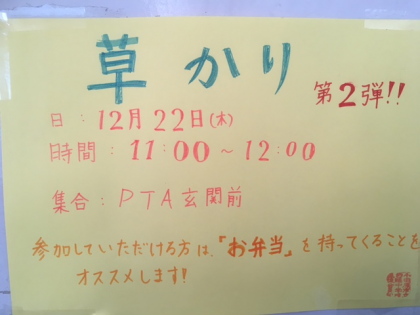 草かり
第2弾!!
日:12月22日(木)
時間:11:00〜12:00
集合:PTA玄関前
参加していただける方は、「お弁当」を持ってくることを
オススメします!